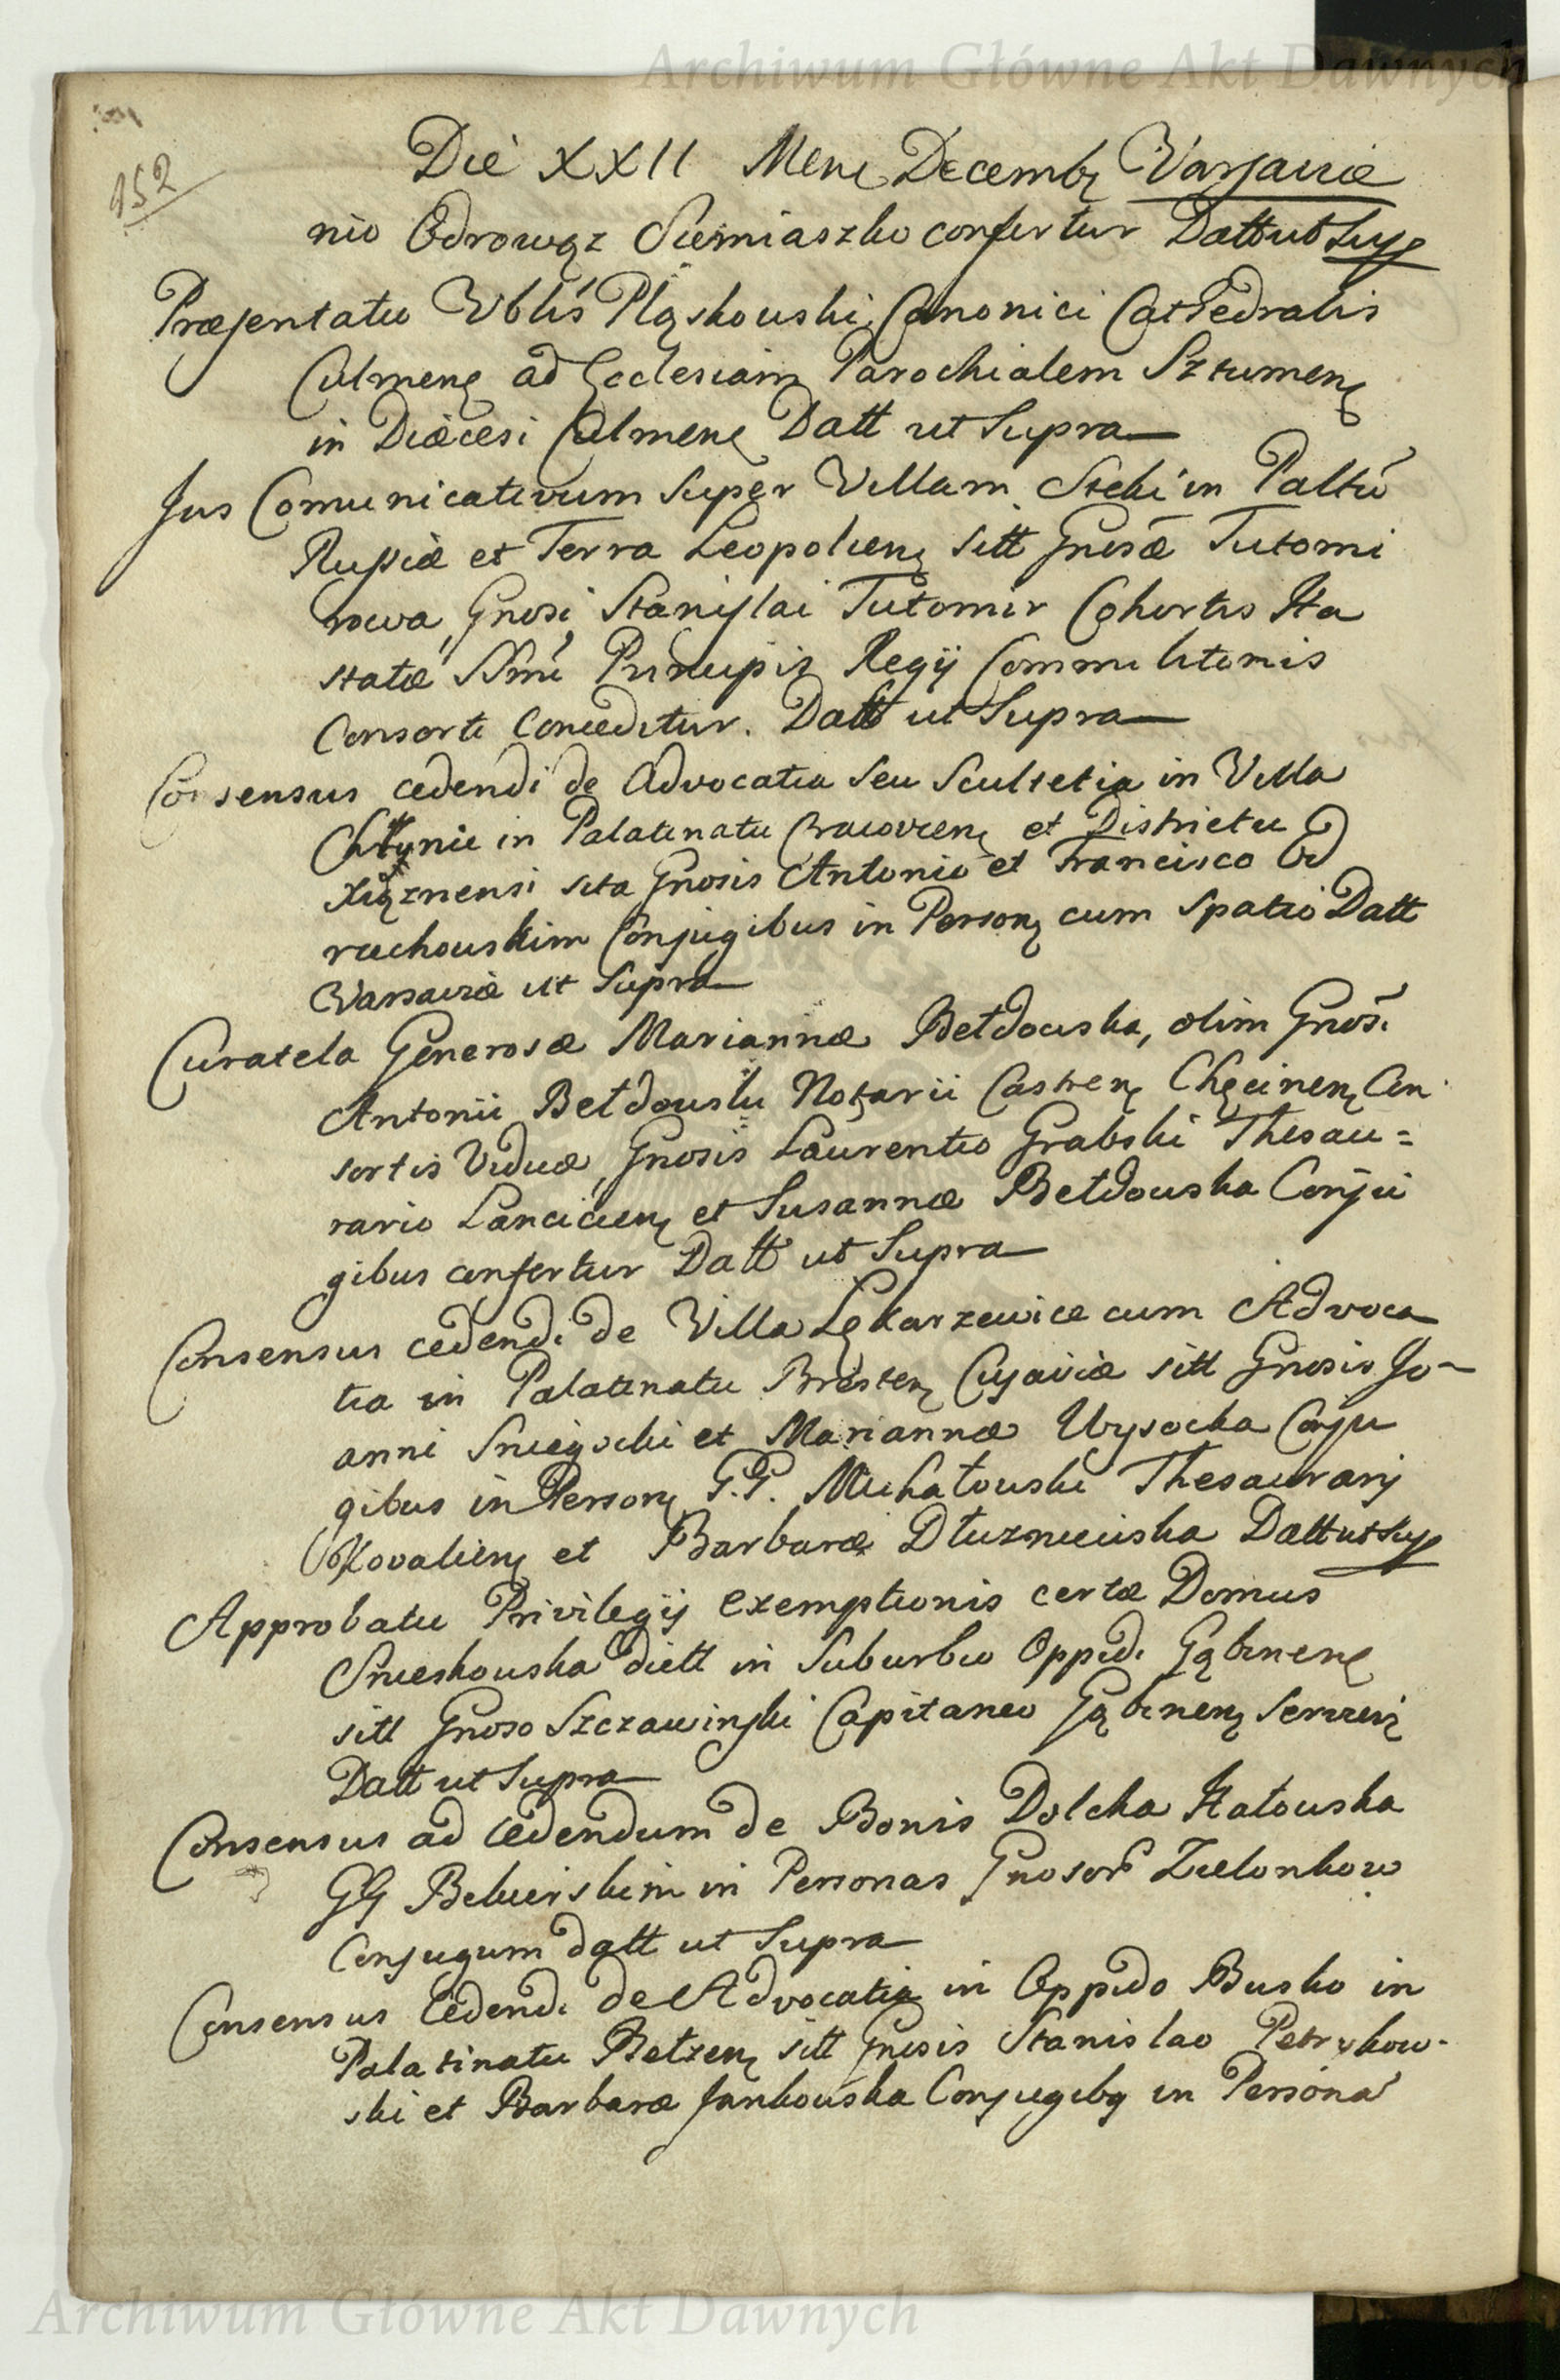 Archiwum Główne Akt Dawnych
152
Die XXII Mens Decembr Varsaviæ
nio Odrowąz Siemiaszko confertur Datt ut Sup
Præsentatio Vblis Pląskouski Canonici Cathedralis
Culmens ad Ecclesiam Parochialem Sztumens
in Diæcesi Culmens Datt ut Supra
Jus Comunicativum super Villam Steki in Palttu
Russiæ et Terra Leopoliens sitt Gnosæ Tutomi
rowa, Gnosi Stanislai Tutomir Cohortis Ha
statæ SSmi Principis Regij Commilitonis
Consorti Conceditur. Datt ut Supra
Consensus cedendi de Advocatia seu Scultetia in Villa
in Palatinatu Cracoviens et Districtu
Xiąznensi sita Gnosis Antonio et Francisco
rachouskim Conjugibus in Persons cum spatio Datt
Varsaviæ ut Supra
Curatela Generosæ Mariannæ Bełdouska, olim Gnosi
Antonii Bełdouski Notarii Castrens Chęcinens Con
sortis Viduæ, Gnosis Laurentio Grabski Thesau=
rario Lanciciens et Susannæ Bełdouska Conju
gibus confertur Datt ut Supra
Consensus cedendi de Villa Lękarzewice cum Advoca
tia in Palatinatu Brestens Cujaviæ sitt Gnosis Jo-
anni Sniegocki et Mariannæ Wysocka Conju
gibus in Persons G.G. Michałouski Thesaurarij
Kovaliens et Barbaræ Dłuzniewska Datt ut Sup
Approbatio Privilegij exemptionis certæ Domus
Snieskouska dictt in Suburbio Oppidi Gąbinens
sitt Gnoso Szczawinski Capitaneo Gąbinens
Datt ut Supra
Consensus ad cedendum de Bonis Dolcka Hatouska
GG in Personas Gnosor Zielonkow
Conjugum datt ut Supra
Consensus Cedendi de Advocatia in Oppido Busko in
Palatinatu Bełzens sitt Gnosis Stanislao Petrykow-
ski et Barbaræ Jankouska Conjugibq in Persona
Archiwum Główne Akt Dawnych